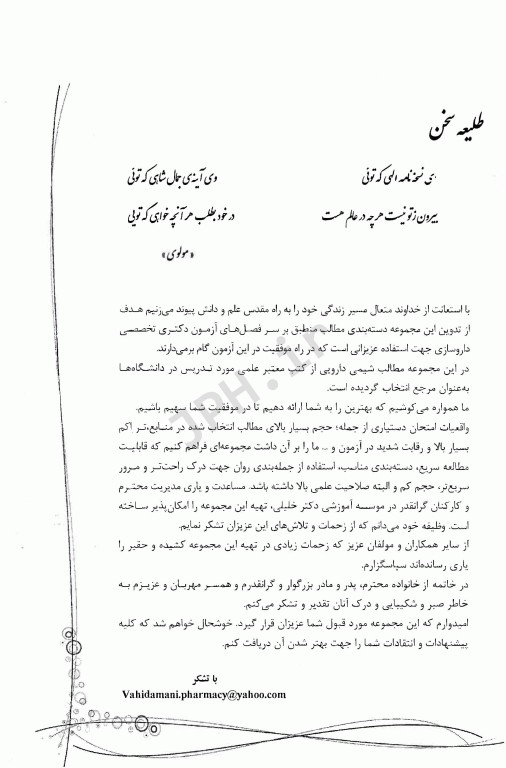 طلیعه سخن
ای نسخه نامه الهی که توئی وی آینه‌ی جمال شاهی که توئی
بیرون ز تو نیست هرچه در عالم هست در خود بطلب هر آنچه خواهی که تویی
«مولوی»
با استعانت از خداوند متعال مسیر زندگی خود را به راه مقدس علم و دانش پیوند می‌زنیم هدف
از تدوین این مجموعه دسته‌بندی مطالب منطبق بر سر فصل‌های آزمون دکتری تخصصی
داروسازی جهت استفاده عزیزانی است که در راه موفقیت در این آزمون گام برمی‌دارند.
در این مجموعه مطالب شیمی دارویی از کتب معتبر علمی مورد تدریس در دانشگاه‌ها
به‌عنوان مرجع انتخاب گردیده است.
ما همواره می‌کوشیم که بهترین را به شما ارائه دهیم تا در موفقیت شما سهیم باشیم.
واقعیات امتحان دستیاری از جمله؛ حجم بسیار بالای مطالب انتخاب شده در منابع، تراکم
بسیار بالا و رقابت شدید در آزمون و ... ما را بر آن داشت مجموعه‌ای فراهم کنیم که قابلیت
مطالعه سریع، دسته‌بندی مناسب، استفاده از جمله‌بندی روان جهت درک راحت‌تر و مرور
سریع‌تر، حجم کم و البته صلاحیت علمی بالا داشته باشد. مساعدت و یاری مدیریت محترم
و کارکنان گرانقدر در موسسه آموزشی دکتر خلیلی، تهیه این مجموعه را امکان‌پذیر ساخته
است. وظیفه خود می‌دانم که از زحمات و تلاش‌های این عزیزان تشکر نمایم.
از سایر همکاران و مولفان عزیز که زحمات زیادی در تهیه این مجموعه کشیده و حقیر را
یاری رسانده‌اند سپاسگزارم.
در خاتمه از خانواده محترم، پدر و مادر بزرگوار و گرانقدرم و همسر مهربان و عزیزم به
خاطر صبر و شکیبایی و درک آنان تقدیر و تشکر می‌کنم.
امیدوارم که این مجموعه مورد قبول شما عزیزان قرار گیرد. خوشحال خواهم شد که کلیه
پیشنهادات و انتقادات شما را جهت بهتر شدن آن دریافت کنم.
با تشکر
Vahidamani.pharmacy@yahoo.com
JPH.ir